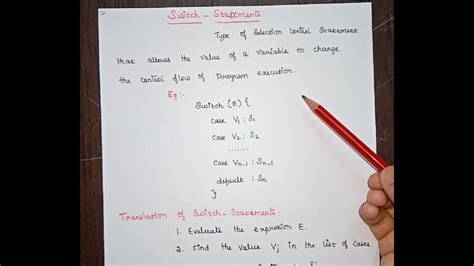 Switch - Statements
Type of Selection Control Statement
that allows the value of a variable to change
the control flow of Program execution.
Eg:-
Switch (E) {
case V1 : S1
case V2 : S2
.......
case Vn-1 : Sn-1
default : Sn
}
Translation of Switch-Statements:
1. Evaluate the expression E.
2. Find the value Vj in the list of cases.